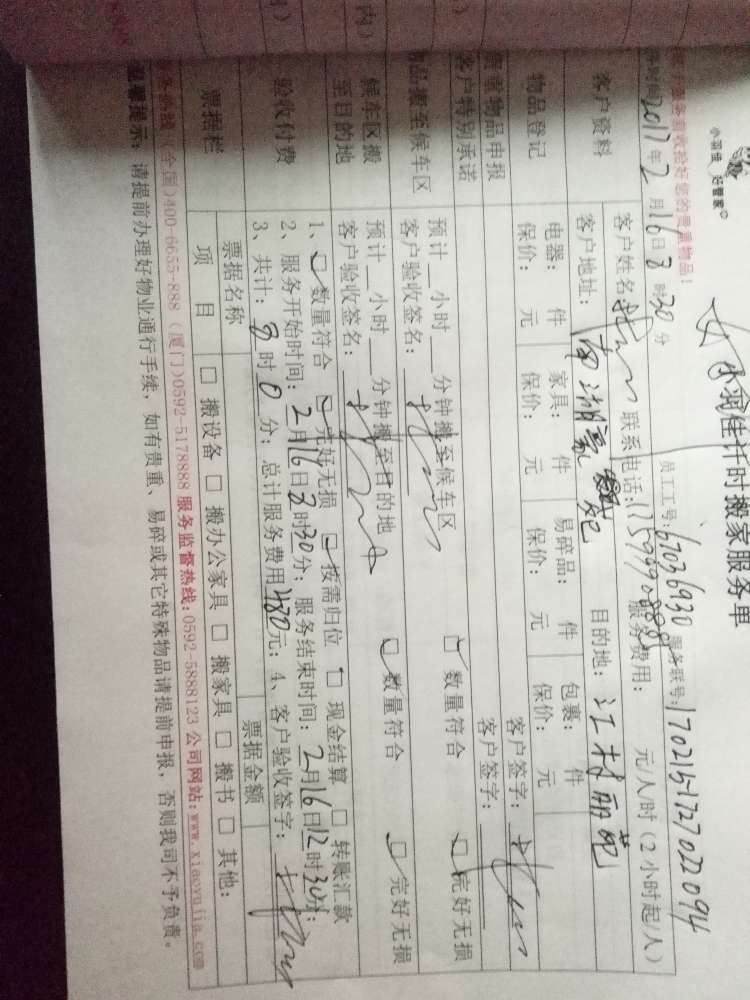 小羽佳 好管家
小羽佳计时搬家服务单
员工工号:67036930 服务联号:1702151727022094
2017年2月16日8时30分
客户资料
客户姓名: 联系电话: 服务费用: 元/人/时(2小时起/人)
客户地址:南湖豪苑 目的地:江村丽苑
物品登记
电器: 件 家具: 件 易碎品: 件 包裹: 件
保价: 元 保价: 元 保价: 元 保价: 元
客户签字:
贵重物品申报
客户特别承诺
客户签字:
物品搬至候车区
预计__小时__分钟搬至候车区 数量符合 完好无损
客户验收签名:
候车区搬
至目的地
预计__小时__分钟搬至目的地 数量符合 完好无损
客户验收签名:
验收付费
1、数量符合 完好无损 按需归位 现金结算 转账汇款
2、服务开始时间:2月16日8时30分;服务结束时间:2月16日12时30分;
3、共计:时0分;总计服务费用480元;4、客户验收签字:
票据栏
票据名称 票据金额
项 目 搬设备 搬办公家具 搬家具 搬书 其他:
(全国)400-6655-888 (厦门)0592-5178888 服务监督热线:0592-5888123 公司网站:www.xiaoyujia.com
温馨提示:请提前办理好物业通行手续,如有贵重、易碎或其它特殊物品请提前申报,否则我司不予负责。